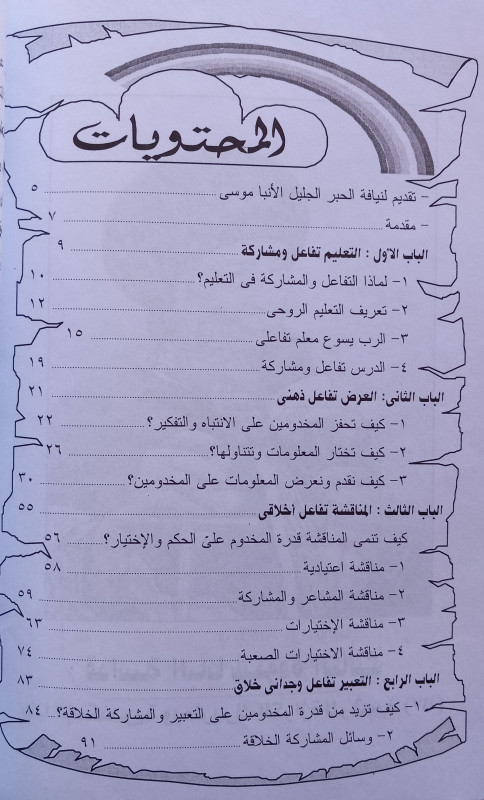 المحتويات
- تقديم لنيافة الحبر الجليل الأنبا موسى ٥
- مقدمة ٧
الباب الأول : التعليم تفاعل ومشاركة ٩
١- لماذا التفاعل والمشاركة فى التعليم؟ ١٠
٢- تعريف التعليم الروحى ١٢
٣- الرب يسوع معلم تفاعلى ١٥
٤- الدرس تفاعل ومشاركة ١٩
الباب الثانى: العرض تفاعل ذهنى ٢١
١- كيف تحفز المخدومين على الانتباه والتفكير؟ ٢٢
٢- كيف تختار المعلومات وتتناولها؟ ٢٦
٣- كيف نقدم ونعرض المعلومات على المخدومين؟ ٣٠
الباب الثالث : المناقشة تفاعل أخلاقى ٥٥
كيف تنمى المناقشة قدرة المخدوم علىّ الحكم والإختيار؟ ٥٦
١- مناقشة اعتيادية ٥٨
٢- مناقشة المشاعر والمشاركة ٥٩
٣- مناقشة الإختيارات ٦٣
٤- مناقشة الاختيارات الصعبة ٧٤
الباب الرابع : التعبير تفاعل وجدانى خلاق ٨٣
١- كيف تزيد من قدرة المخدومين على التعبير والمشاركة الخلاقة؟ ٨٤
٢- وسائل المشاركة الخلاقة ٩١